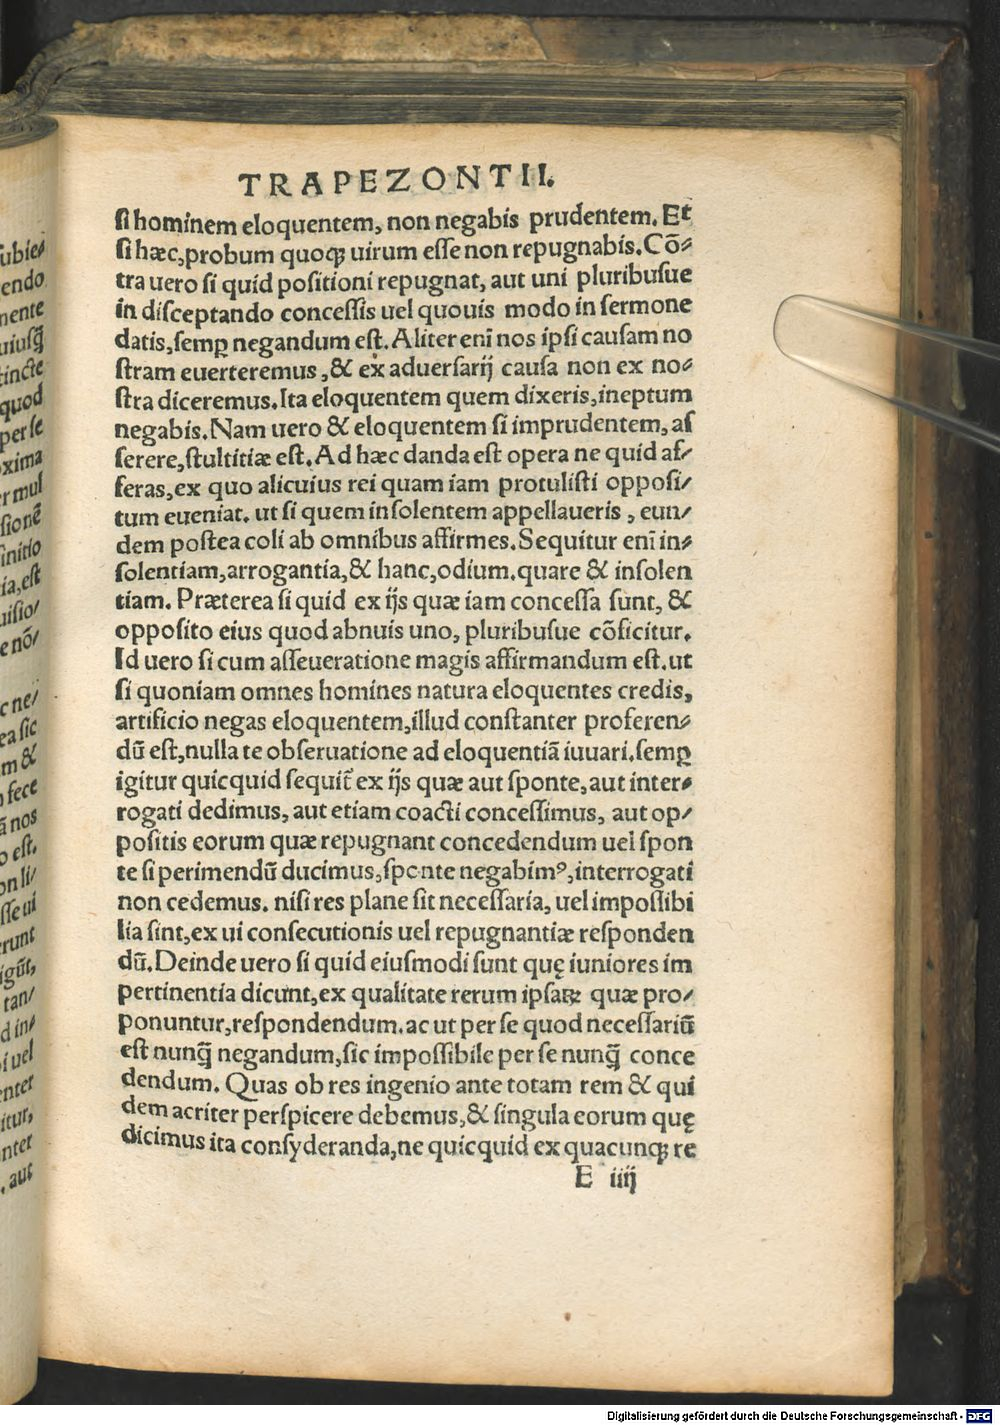 TRAPEZONTII.
ſi hominem eloquentem, non negabis prudentem. Et
ſi hæc, probum quoqꝫ uirum eſſe non repugnabis. Cõ-
tra uero ſi quid poſitioni repugnat, aut uni pluribuſue
in diſceptando conceſſis uel quouis modo in ſermone
datis, ſemꝑ negandum eſt. Aliter enĩ nos ipſi cauſam no
ſtram euerteremus, & ex aduerſarij cauſa non ex no-
ſtra diceremus. Ita eloquentem quem dixeris, ineptum
negabis. Nam uero & eloquentem ſi imprudentem, aſ
ſerere, ſtultitiæ eſt. Ad hæc danda eſt opera ne quid aſ-
feras, ex quo alicuius rei quam iam protuliſti oppoſi-
tum eueniat. ut ſi quem inſolentem appellaueris, eun-
dem poſtea coli ab omnibus affirmes. Sequitur enĩ in-
ſolentiam, arrogantia, & hanc, odium. quare & inſolen
tiam. Præterea ſi quid ex ijs quæ iam conceſſa ſunt, &
oppoſito eius quod abnuis uno, pluribuſue cõficitur.
Id uero ſi cum aſſeueratione magis affirmandum eſt. ut
ſi quoniam omnes homines natura eloquentes credis,
artificio negas eloquentem, illud conſtanter proferen-
dũ eſt, nulla te obſeruatione ad eloquentiã iuuari. ſemꝑ
igitur quicquid ſequit̃ ex ijs quæ aut ſponte, aut inter-
rogati dedimus, aut etiam coacti conceſſimus, aut op-
poſitis eorum quæ repugnant concedendum uel ſpon
te ſi perimendũ ducimus, ſponte negabimꝰ, interrogati
non cedemus. niſi res plane ſit neceſſaria, uel impoſſibi
lia ſint, ex ui conſecutionis uel repugnantiæ reſponden
dũ. Deinde uero ſi quid eiuſmodi ſunt quę iuniores im
pertinentia dicunt, ex qualitate rerum ipſaꝝ quæ pro-
ponuntur, reſpondendum. ac ut per ſe quod neceſſariũ
eſt nunq̃ negandum, ſic impoſſibile per ſe nunq̃ conce
dendum. Quas ob res ingenio ante totam rem & qui
dem acriter perſpicere debemus, & ſingula eorum quę
dicimus ita conſyderanda, ne quicquid ex quacunqꝫ re
E iiij
Digitalisierung gefördert durch die Deutsche Forschungsgemeinschaft - DFG